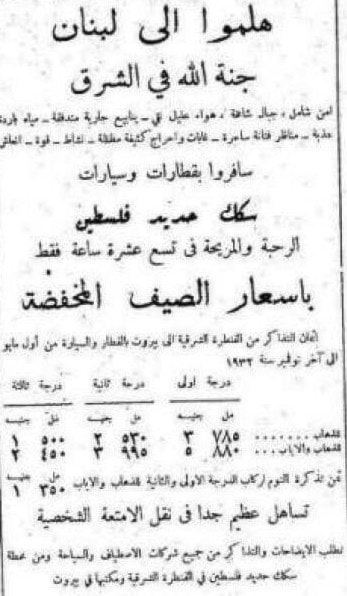 هلموا الى لبنان
جنة الله في الشرق
امن شامل ، جبال شاهقة ، هواء عليل نقي – ينابيع جارية متدفقة – مياه باردة
عذبة – مناظر فتانة ساحرة – غابات واحراج كثيفة مظللة – نشاط – قوة – انعاش
سافروا بقطارات وسيارات
سكك حديد فلسطين
الرحبة والمريحة في تسع عشرة ساعة فقط
باسعار الصيف المخفضة
اثمان التذاكر من القنطرة الشرقية الى بيروت بالقطار والسيارة من أول مايو
الى آخر نوفمبر سنة ١٩٣٣
درجة اولى درجة ثانية درجة ثالثة
مل جنيه مل جنيه مل جنيه
للذهاب ....... ٧٨٥ ٣ ٥٣٠ ٢ ٥٠٠ ١
للذهاب والاياب .. ٨٨٠ ٥ ٩٩٥ ٣ ٤٥٠ ٢
مل جنيه
ثمن تذكرة النوم لركاب الدرجة الاولى والثانية للذهاب والاياب ٣٥٠ ١
تساهل عظيم جدا في نقل الامتعة الشخصية
تطلب الايضاحات والتذاكر من جميع شركات الاصطياف والسياحة ومن محطة
سكك حديد فلسطين في القنطرة الشرقية ومكتبها في بيروت